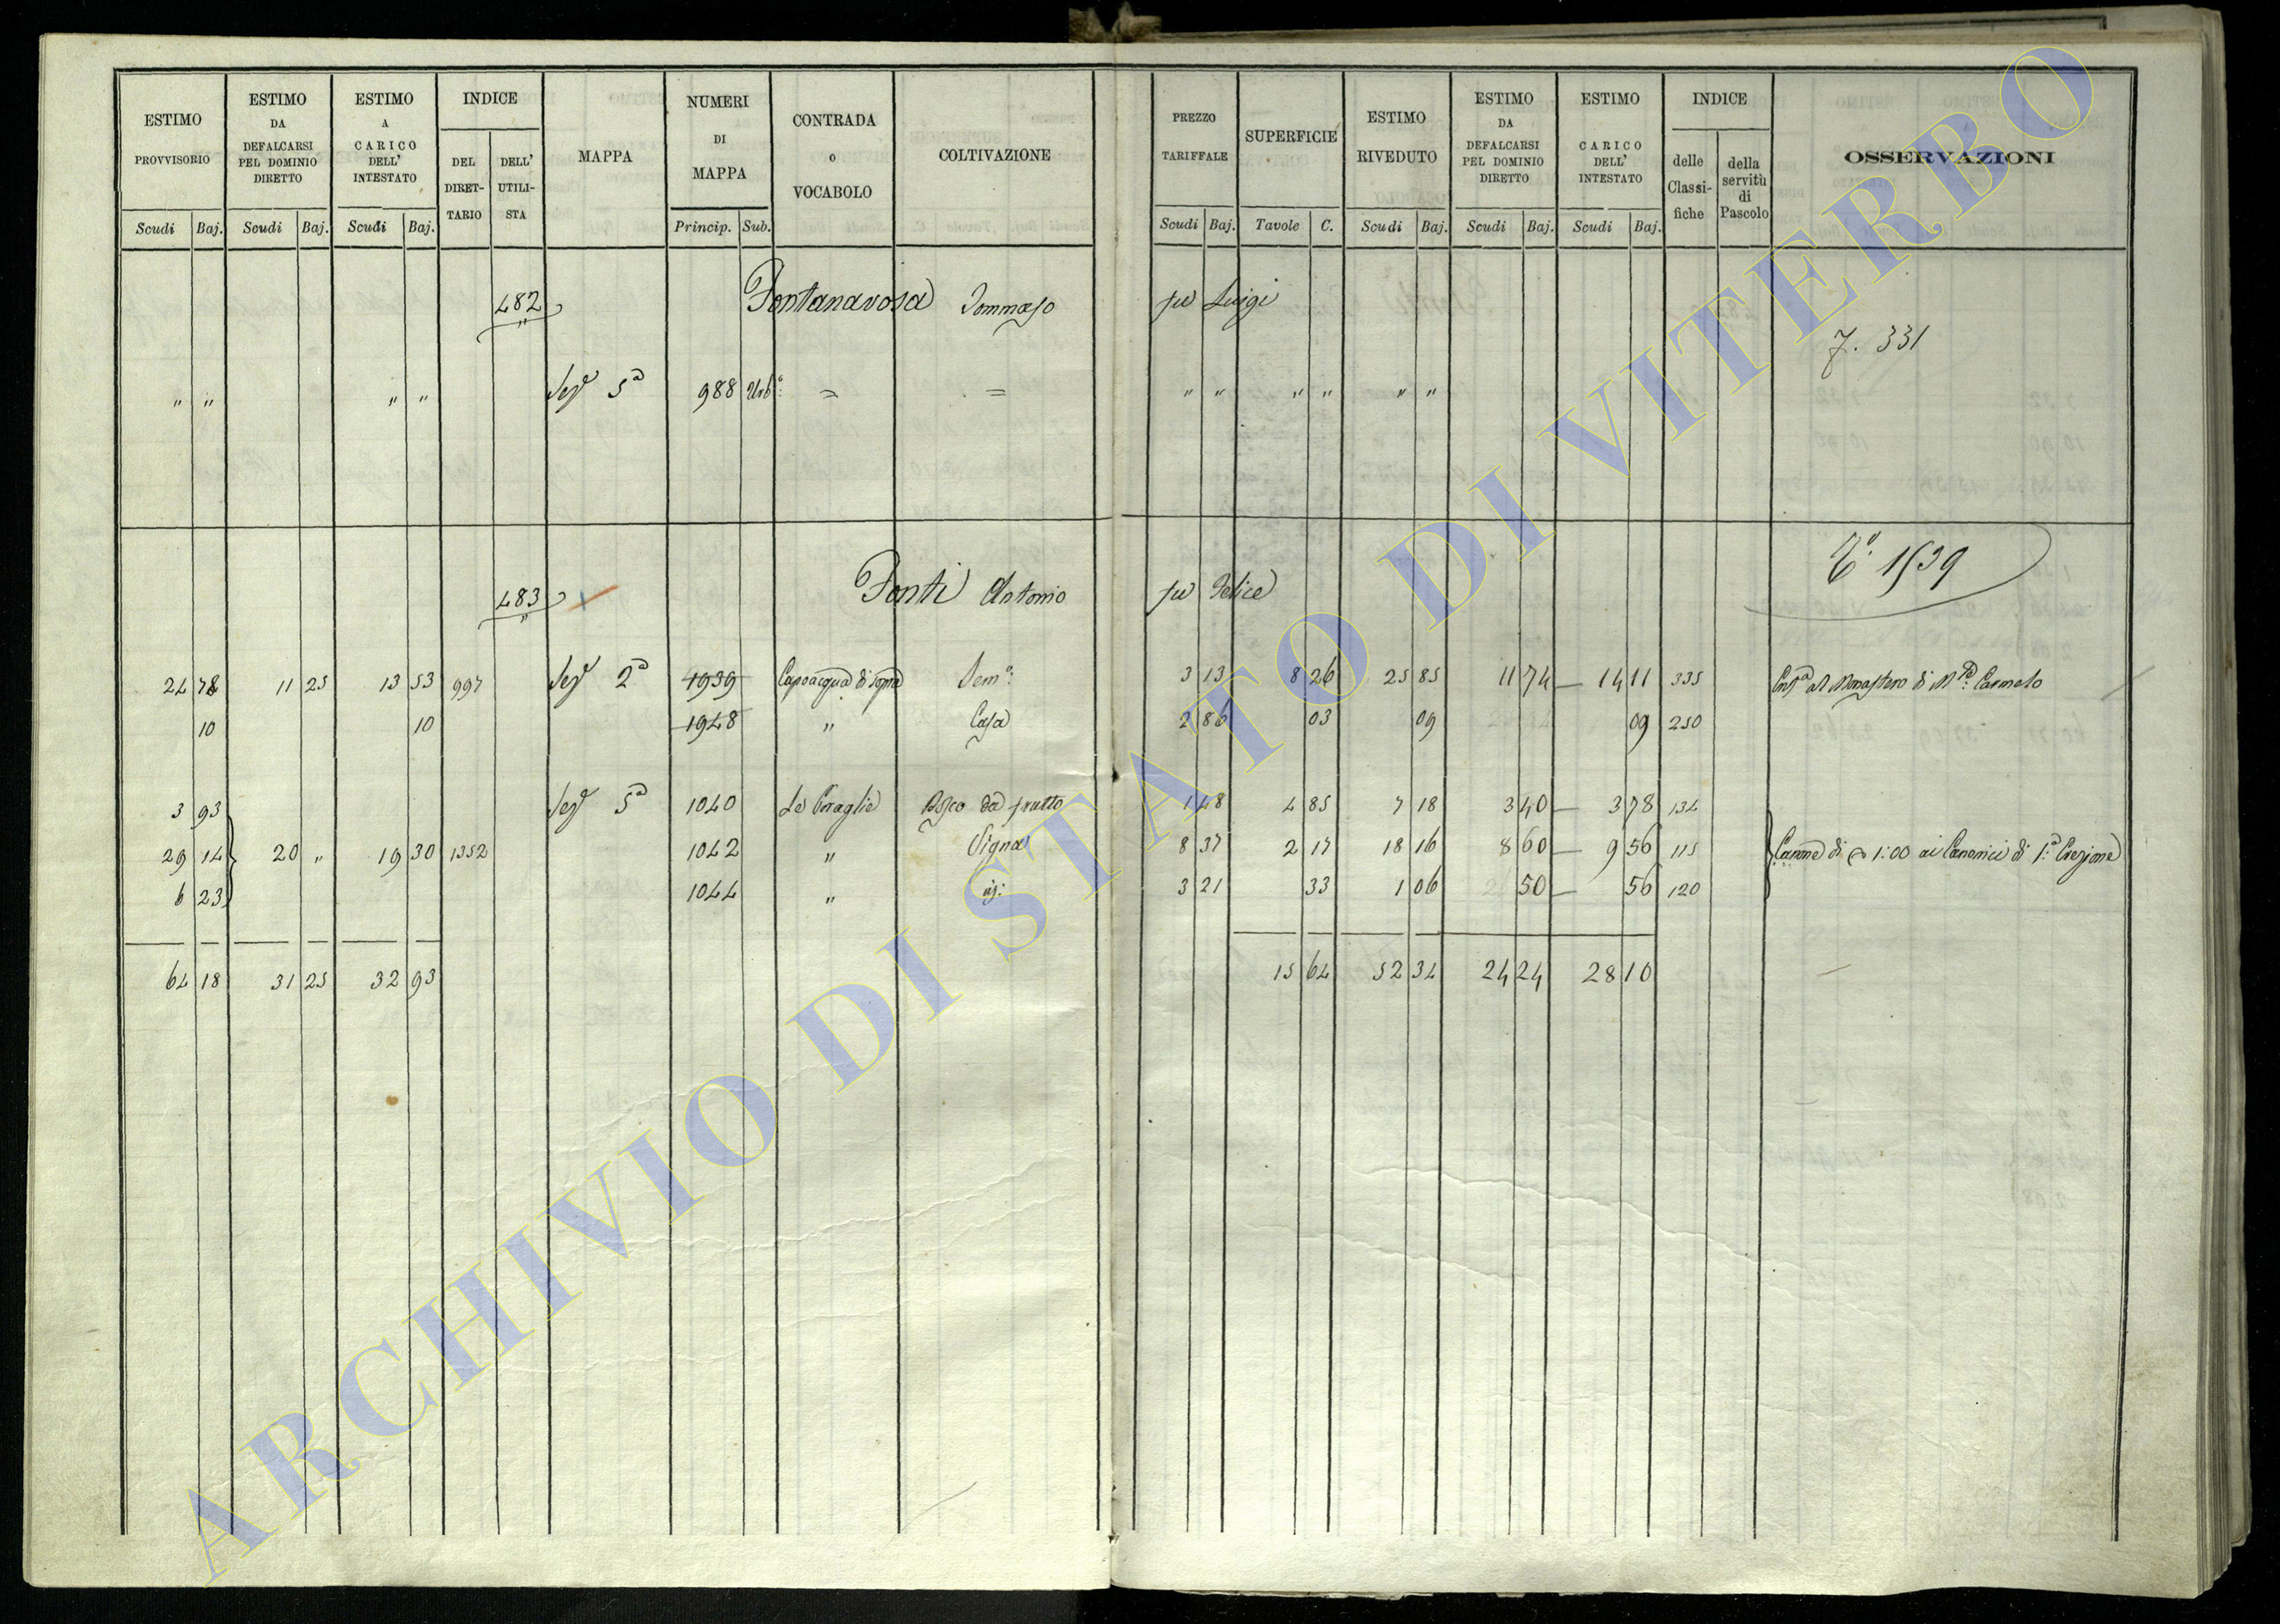 ESTIMO PROVVISORIO Scudi Baj.
ESTIMO DA DEFALCARSI PEL DOMINIO DIRETTO Scudi Baj.
ESTIMO A CARICO DELL' INTESTATO Scudi Baj.
INDICE DEL DIRET-TARIO DELL' UTILI-STA
MAPPA
NUMERI DI MAPPA Princip. Sub.
CONTRADA O VOCABOLO
COLTIVAZIONE
PREZZO TARIFFALE Scudi Baj.
SUPERFICIE Tavole C.
ESTIMO RIVEDUTO Scudi Baj.
ESTIMO DA DEFALCARSI PEL DOMINIO DIRETTO Scudi Baj.
ESTIMO CARICO DELL' INTESTATO Scudi Baj.
INDICE delle Classi-fiche della servitù di Pascolo
OSSERVAZIONI
482 Fontanarosa Tommaso fu Luigi
331
" " " " Sez 5a 988 Urb: = = " " " " " "
No: 1539
483 Fonti Antonio fu Felice
24 78 11 25 13 53 997 Sez 2a 1939 Capoacqua di sopra Sem: 3 13 8 26 25 85 11 74 14 11 335 al Monastero di Carmelo
10 10 1948 " Casa 2 86 03 09 09 250
3 93 Sez 5a 1040 Le da frutto 1 48 4 85 7 18 3 40 3 78 134
29 14 20 " 19 30 1352 1042 " Vigna 8 37 2 17 18 16 8 60 9 56 115 Canone di 1:00 ai Canonici di
6 23 1044 " 3 21 33 1 06 50 56 120
64 18 31 25 32 93 15 64 52 34 24 24 28 10
ARCHIVIO DI STATO DI VITERBO